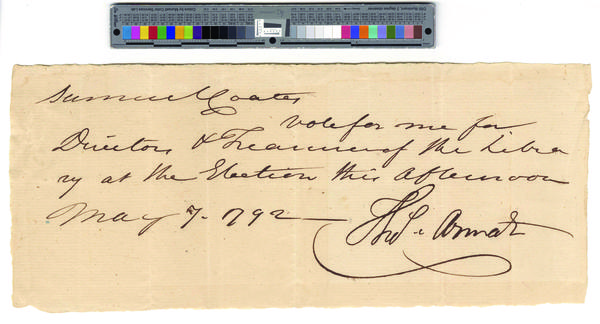 Samuel Coates
vote for me for
Directors & Treasurer of the Libra
ry at the Election this Afternoon
May 7. 792 Thos. Armat